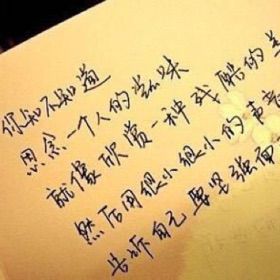 你知不知道
思念一个人的滋味
就像欣赏一种残酷的美
然后用很小很小的声音
告诉自己要坚强面